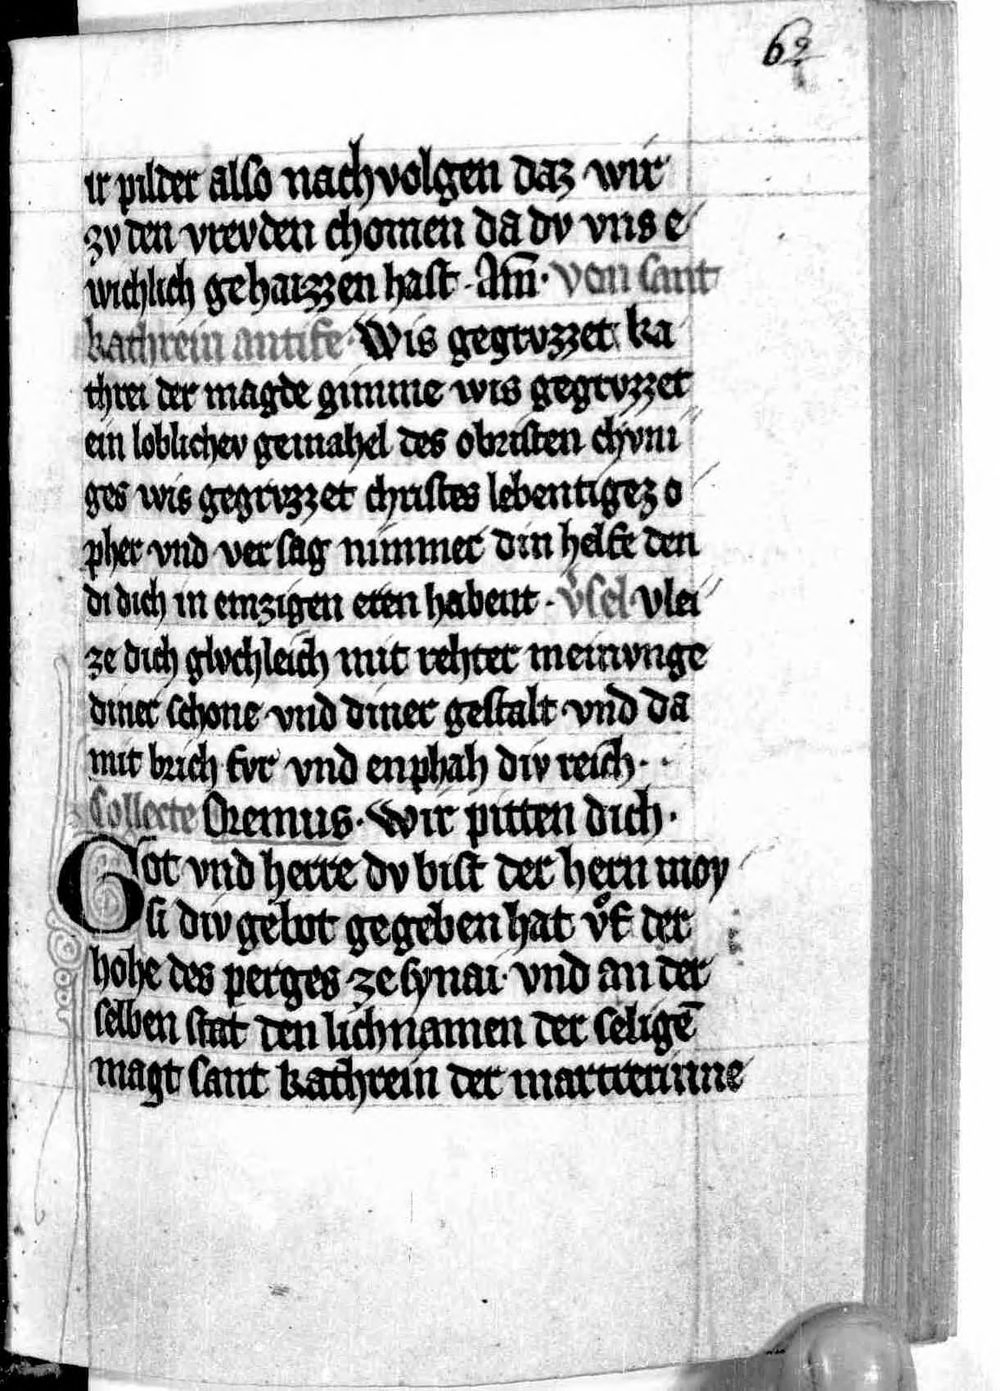 62
ir pilder also nachvolgen daz wir
zv den vrevden chomen da dv vns e
wichlich gehaizzen hast. Am̄. von sant
kathrein antife. Wis gegrvzzet ka
threi der magde gimme wis gegrvzzet
ein loblichev gemahel des obristen chvni
ges wis gegrvzzet christes lebentigez o
pher vnd versag nimmer din helfe den
di dich in emzigen eren habent. v̓sel vlei
ze dich glvchleich mit rehter meinvnge
diner schone vnd diner gestalt vnd da
mit brich fvr vnd enphah div reich.
Collecte Oremus. Wir pitten dich.
Got vnd herre dv bist der hern moy
si div gebot gegeben hat vͦf der
hohe des perges ze synai. vnd an der
selben stat den lichnamen der seligē
magt sant kathrein der martrerinne